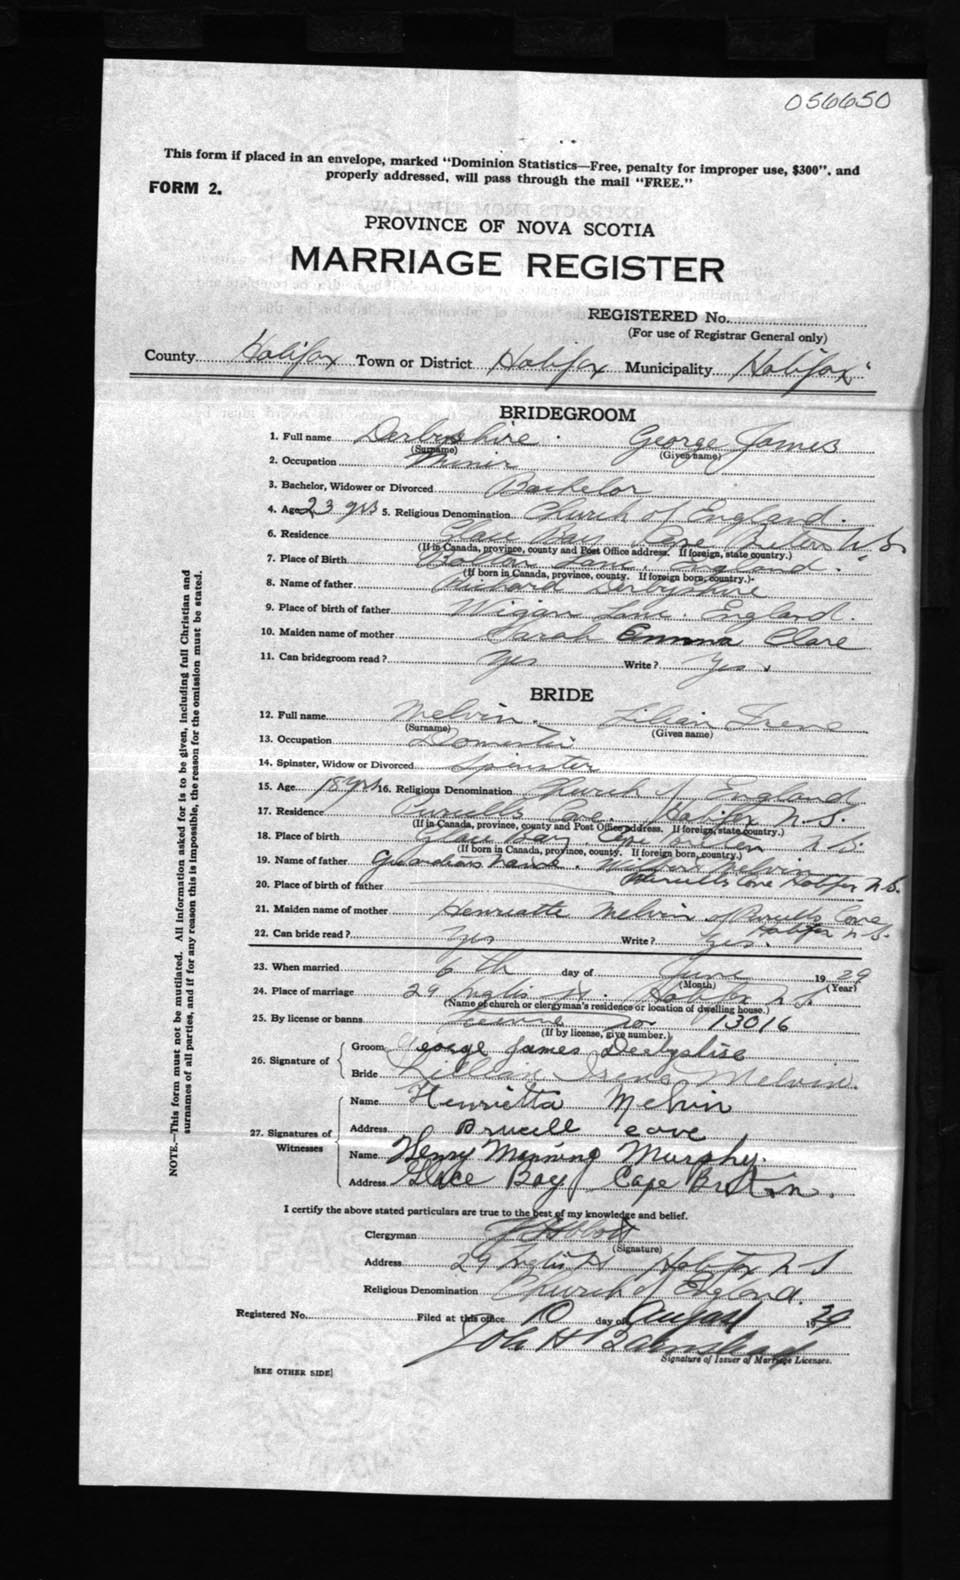 056650
This form if placed in an envelope, marked "Dominion Statistics—Free, penalty for improper use, $300", and
properly addressed, will pass through the mail "FREE."
FORM 2.
PROVINCE OF NOVA SCOTIA
MARRIAGE REGISTER
REGISTERED No.
(For use of Registrar General only)
County Halifax Town or District Halifax Municipality Halifax
BRIDEGROOM
1. Full name Derbyshire George James
(Surname) (Given name)
2. Occupation Miner
3. Bachelor, Widower or Divorced Bachelor
4. Age 23 yrs 5. Religious Denomination Church of England.
6. Residence Glace Bay Cape Breton N.S.
(If in Canada, province, county and Post Office address. If foreign, state country.)
7. Place of Birth Lane. England.
(If born in Canada, province, county. If foreign born, country.)
8. Name of father Richard Derbyshire
9. Place of birth of father Wigan Lane. England.
10. Maiden name of mother Sarah Emma Clare
11. Can bridegroom read? Yes Write? Yes
BRIDE
12. Full name Melvin. Lilian Irene
(Surname) (Given name)
13. Occupation Domestic
14. Spinster, Widow or Divorced Spinster
15. Age 18 yrs 16. Religious Denomination Church of England
17. Residence Purcells Cove. Halifax N.S.
(If in Canada, province, county and Post Office address. If foreign, state country.)
18. Place of birth Glace Bay. Cape Breton N.S.
(If born in Canada, province, county. If foreign born, country.)
19. Name of father Guardians name. Melvin
20. Place of birth of father Purcells Cove Halifax N.S.
21. Maiden name of mother Henriette Melvin of Purcells Cove
Halifax N.S.
22. Can bride read? Yes Write? Yes.
23. When married 6th day of June 1929
(Month) (Year)
24. Place of marriage 29 Inglis St. Halifax N.S
(Name of church or clergyman's residence or location of dwelling house.)
25. By license or banns License no 13016
(If by license, give number.)
26. Signature of
Groom George James Derbyshire
Bride Lillian Irene Melvin.
27. Signatures of Witnesses
Name Henrietta Melvin
Address cove
Name Henry Manning Murphy.
Address Glace Bay Cape Breton.
I certify the above stated particulars are true to the best of my knowledge and belief.
Clergyman
(Signature)
Address 29 Inglis St Halifax N S
Religious Denomination Church of England.
Registered No. Filed at this office 10 day of August 1929
Signature of Issuer of Marriage Licenses.
[SEE OTHER SIDE]
NOTE.—This form must not be mutilated. All information asked for is to be given, including full Christian and
surnames of all parties, and if for any reason this is impossible, the reason for the omission must be stated.